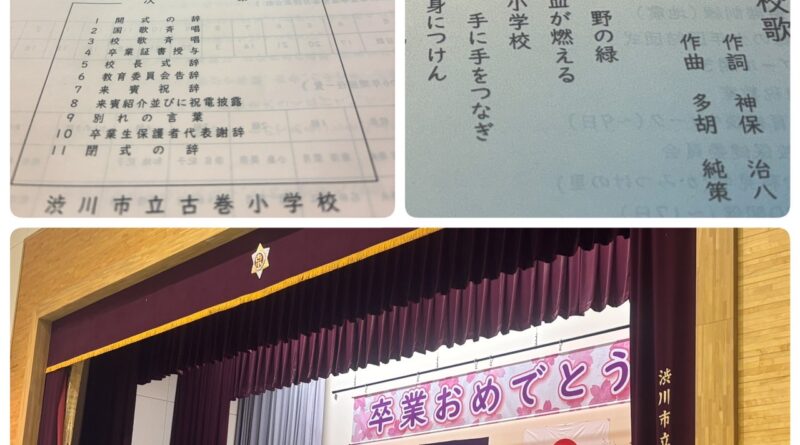 次 第
1 開式の辞
2 国歌斉唱
3 校歌斉唱
4 卒業証書授与
5 校長式辞
6 教育委員会告辞
7 来賓祝辞
8 来賓紹介並びに祝電披露
9 別れの言葉
10 卒業生保護者代表謝辞
11 閉式の辞
渋川市立古巻小学校
校歌
作詞 神保 治八
作曲 多胡 純策
野の緑
血が燃える
小学校
手に手をつなぎ
身につけん
卒業おめでとう
渋川市立